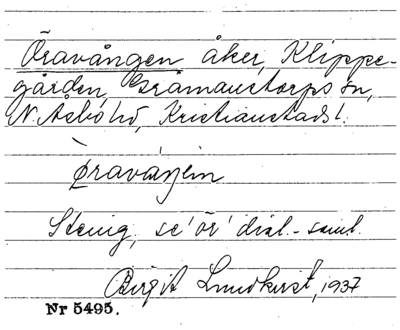 Öravången åker, Klippe-
gården, Gråmanstorps sn,
N. Åsbo hd, Kristianstads l.
Øravåŋein
Stenig, se 'ör' dial.-saml.
Birgit Lundkvist, 1937
Nr 5495.